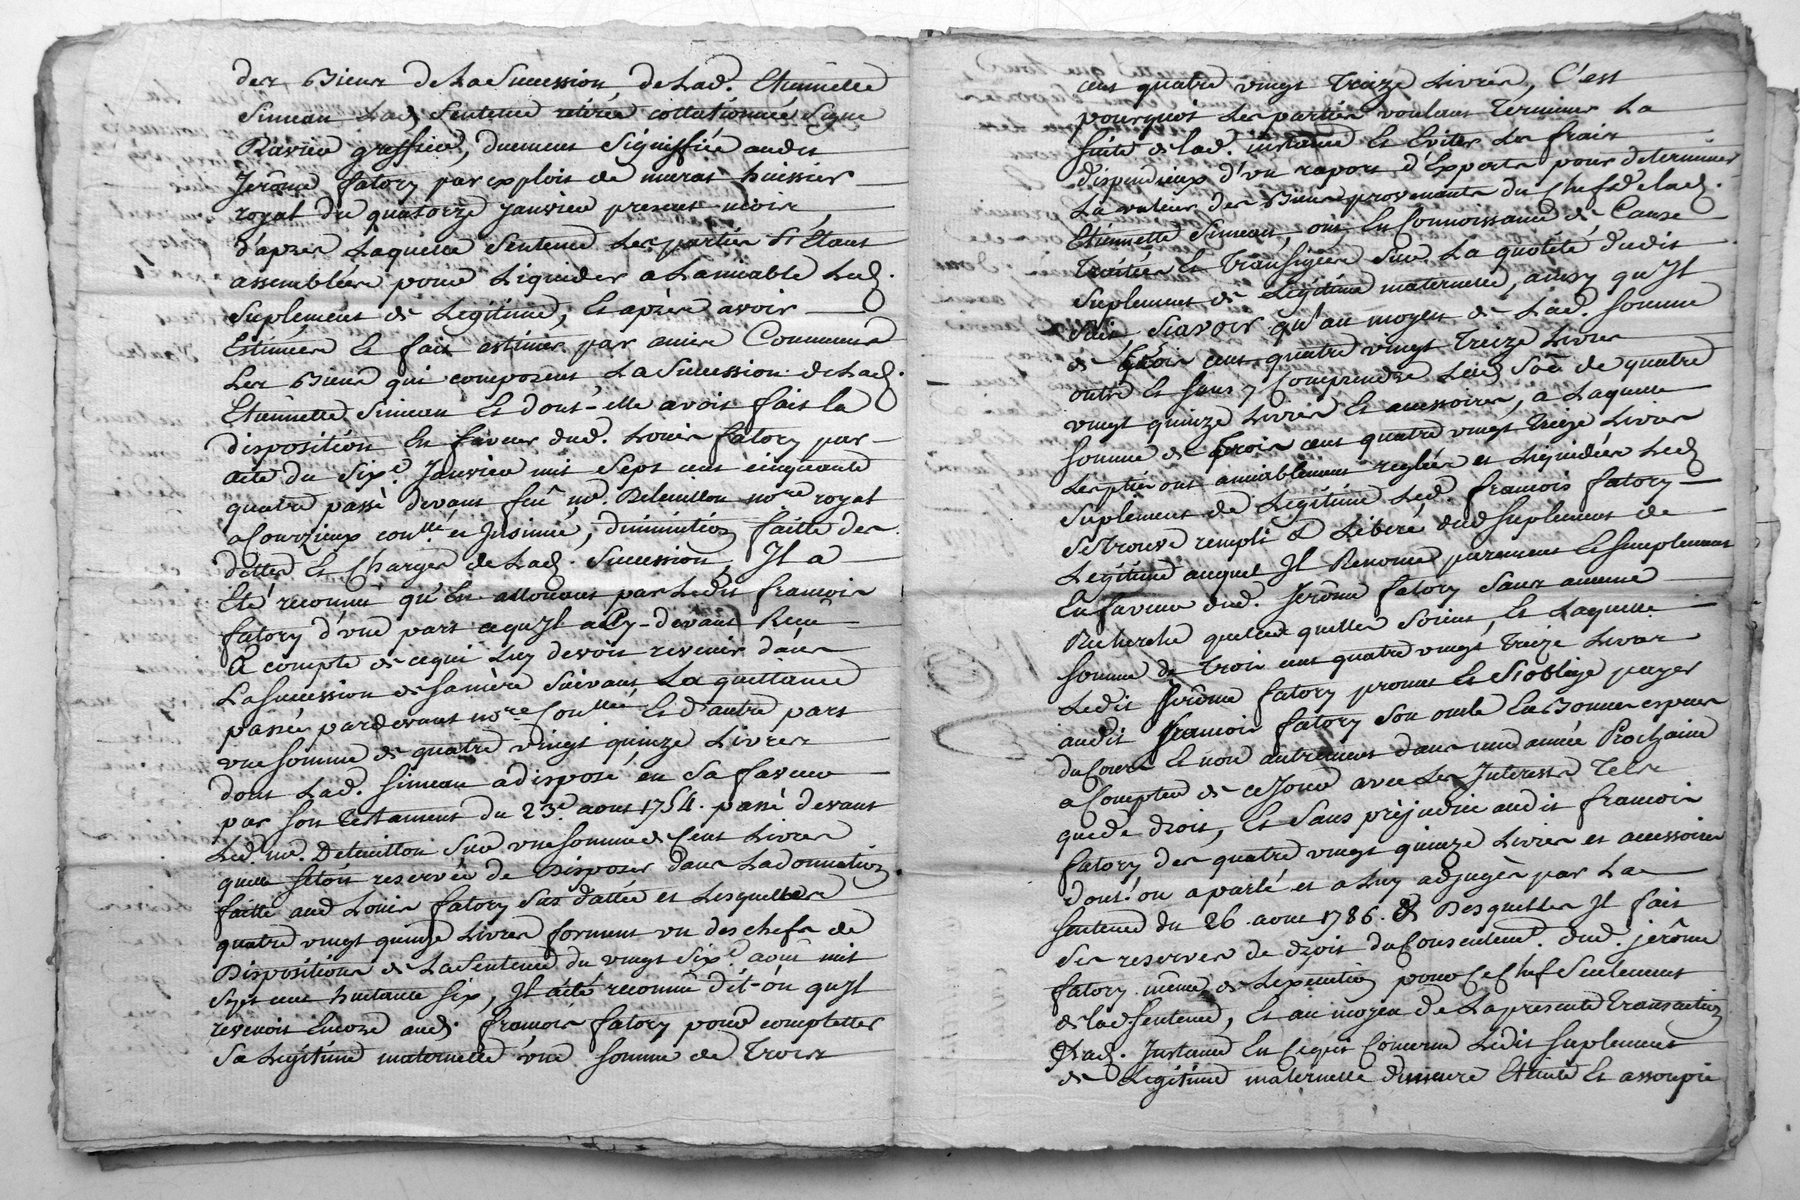 des Biens de La Sucession, de Lad. Etiennette
Simean Lad. Sentence retirée collationnée Signé
greffier, duement Signiffiée audit
Jerôme fatory par exploit de murat huissier
royal du quatorze janvier present mois,
d'apres Laquelle Sentence Les parties S'Etant
assemblées pour Liquider a Lamiable Led.
Suplement de Legitime, Et après avoir
Estimées Et fait estimer par amis Communs
Les Biens qui composent La Sucession de Lad.
Etiennette Simean Et dont elle avoit fait la
disposition En faveur dud. Louis fatory par
acte du Six.e Janvier mil Sept cent cinquante
quatre passé devant feû me. no.re royal
a Courzieux con.lle et , diminution faitte des
dettes Et Charges de Lad. Sucession, Il a
Eté reconnu qu'En allouant par Ledit francois
fatory d'vne part cequ'Il a Cy-devant Reçû
A compte de cequi Luy devoit revenir dans
La Sucession de Sa mère Suivant La quittance
passée pardevant no.re Con.lle Et d'autre part
vne Somme de quatre vingt quinze Livres
dont Lad. Simean a disposé en Sa faveur
par Son Testament du 23.e aout 1754. passé devant
Led. me. Sur vne Somme de Cent Livres
quelle S'étoit reservée de Disposer dans La donnation
faitte aud Louis fatory Sus dattée et Lesquelles
quatre vingt quinze Livres forment vn des chefs de
Dispositions de La Sentence du vingt Six.e aout mil
Sept cent huitante Six, Il a été reconnu dit-on qu'Il
revenoit Encore aud. francois fatory pour completter
Sa Legitime maternelle vne Somme de Trois
cent quatre vingt Treize Livres, C'est
pourquoi Les parties voulant Terminer La
Suite de Lad. instance Et Eviter Les frais
dispendieux d'vn raport d'Experts pour determiner
La valeur des Biens provenants du Chef de Lad.
Etiennette Simean, ont En Connoissance de Cause
Traitées Et Transigées Sur La quotité dudit
Suplement de Legitime maternelle, ainsy qu'Il
Suit Scavoir qu'au moyen de Lad. Somme
de Trois cent quatre vingt Treize Livres
outre Et Sans y Comprendre Led. Soê de quatre
vingt quinze Livres Et accessoires, a Laquelle
Somme de Trois cent quatre vingt Treize Livres
Les pties ont amiablement reglées et Liquidées Led.
Suplement de Legitime Led. francois fatory
Se Trouve rempli & Liberé dud Suplement de
Legitime auquel Il Renonce purement Et Simplement
En faveur dud. Jerôme fatory Sans aucune
Recherche quelcequelles Soient, Et Laquelle
Somme de Trois cent quatre vingt Treize Livres
Ledit Jerôme fatory promet Et S'oblige payer
audit francois fatory Son oncle En Bonnes especes
du Cours Et non autrement dans une année Prochaine
a Compter de ce Jour avec Les Interests Tels
que de droit, Et Sans préjudice audit francois
fatory des quatre vingt quinze Livres et accessoires
dont on a parlé et a Luy adjugés par La
Sentence du 26 aout 1786. & Desquelles Il fait
Ses reserves de droit du Consentem.t dud. jerôme
fatory même de L'execution pour Ce Chef Seulement
de Lad. Sentence, Et au moyen de La presente Transaction
Lad. Instance En Cequi Concerne Ledit Suplement
de Legitime maternelle demeure Eteinte Et assoupie